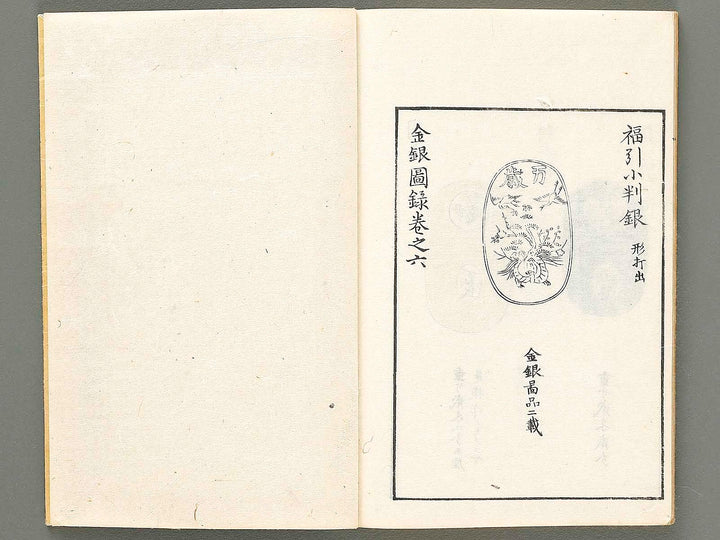 福引小判銀 形打出
万歳
金銀啚品ニ載
金銀圖錄卷之六